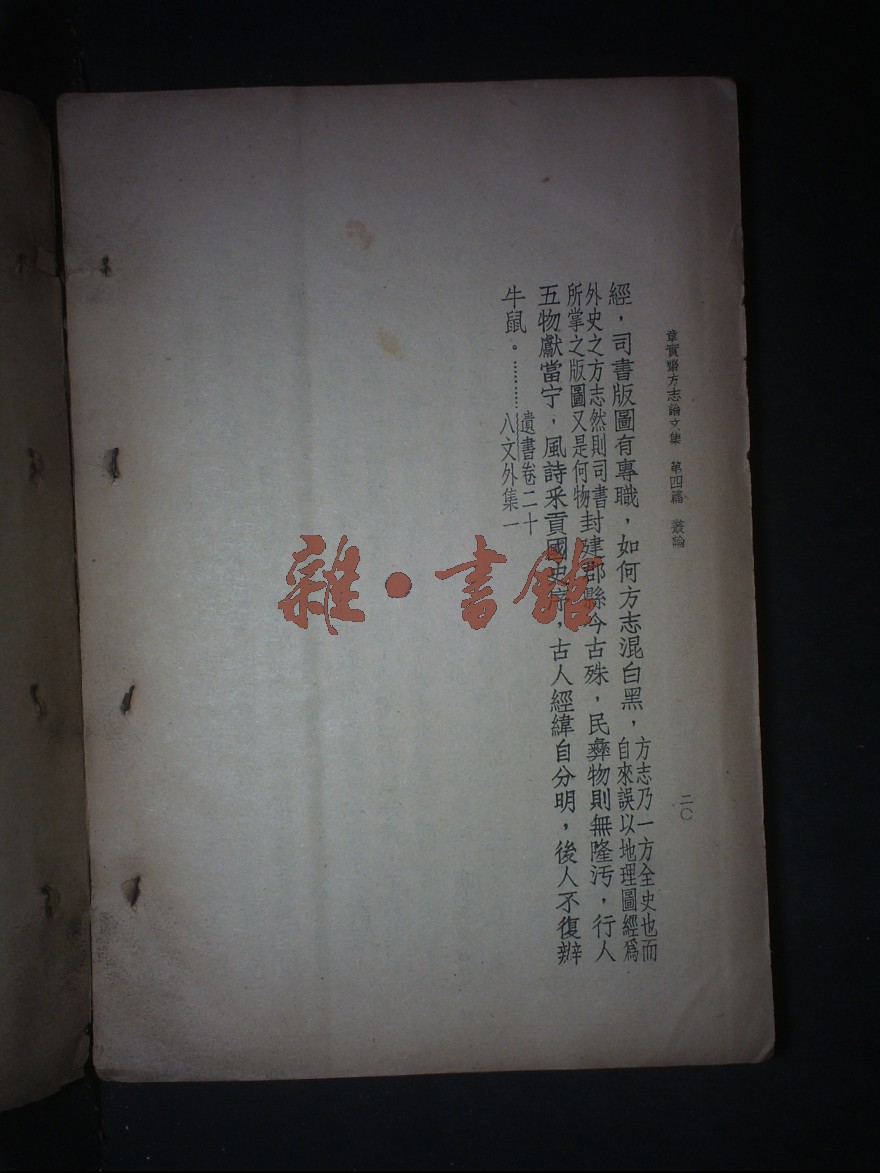 章實齋方志論文集　第四篇　叢論
二〇
經，司書版圖有專職，如何方志混白黑，方志乃一方全史也而自來誤以地理圖經爲
外史之方志然則司書所掌之版圖又是何物封建郡縣今古殊，民彝物則無隆汚，行人
五物獻當宁，風詩采貢國史序，古人經緯自分明，後人不復辨
牛鼠。………遺書卷二十八文外集一
雜·書館